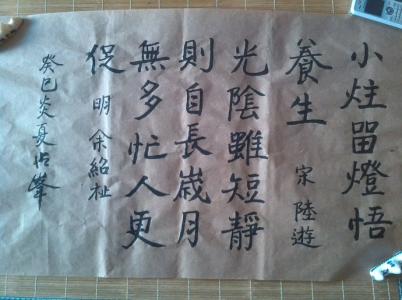 小炷留燈悟
養生 宋 陸遊
光陰雖短靜
則自長歲月
無多忙人更
促 明 余紹祉
癸巳炎夏 峯